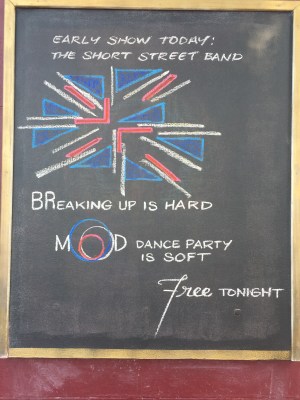 EARLY SHOW TODAY:
THE SHORT STREET BAND
BREAKING UP IS HARD
MOD DANCE PARTY
IS SOFT
Free TONIGHT